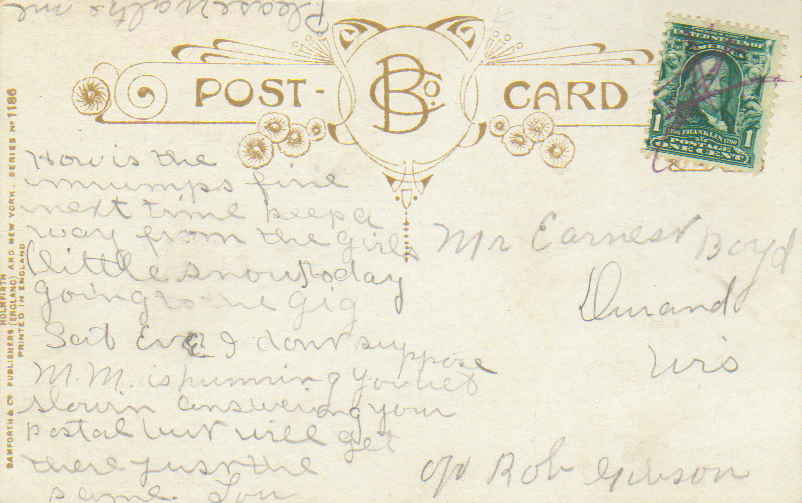 Please write me
POST-
BCo.
CARD
UNITED STATES OF
AMERICA
1 FRANKLIN 1
POSTAGE
ONE CENT
BAMFORTH & CO PUBLISHERS HOLMFIRTH (ENGLAND) AND NEW YORK. SERIES No 1186
PRINTED IN ENGLAND
How is the
mumps fine
next time keep a
way from the girls
little snow today
going to
Sat Eve I dont suppose
M.M. is humming you
slow in answering your
postal but will get
there just the
same. Lou
Mr Earnest Boyd
Durand
Wis
c/o Rob Gibson